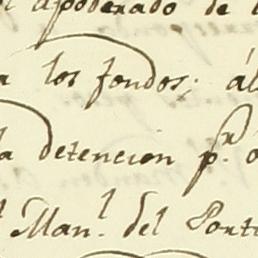 apoderado de
los fondos; ál
la detencion p.r
Man.l del Porti